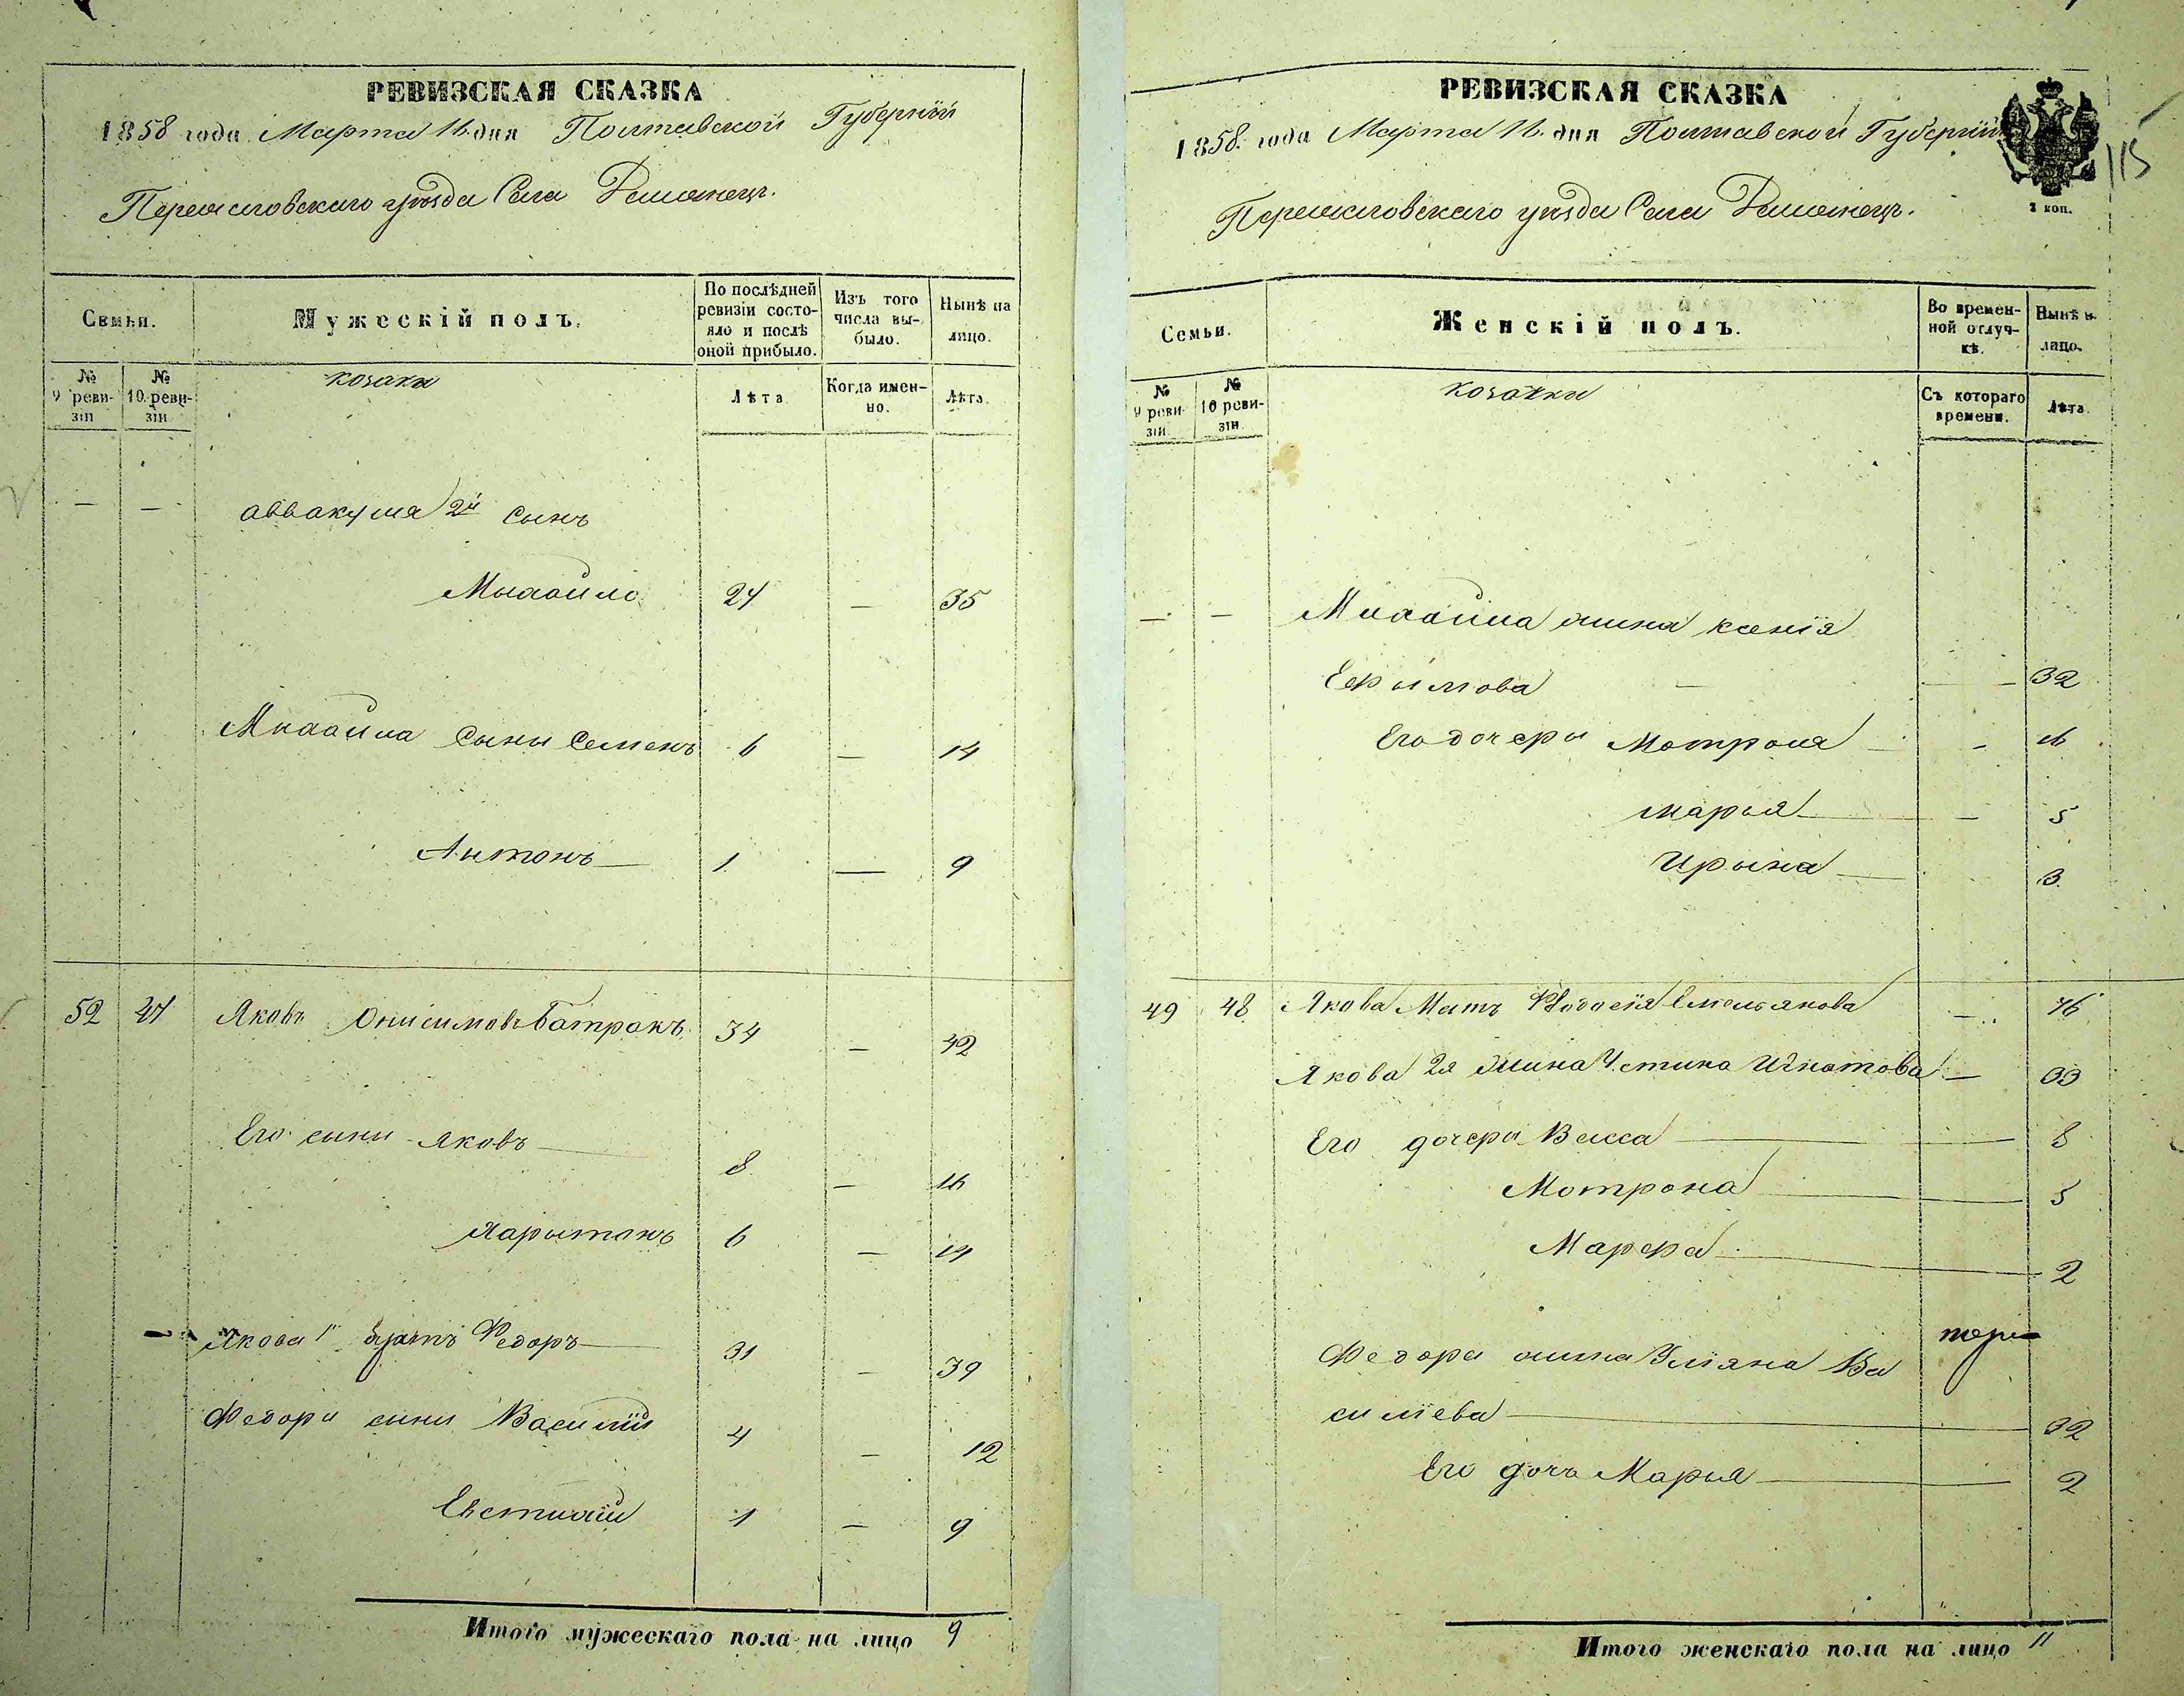 РЕВИЗСКАЯ СКАЗКА
1858 года Марта 16 дня Полтавской Губернїи
Переяславского уѣзда Села
Семьи.
Мужескій полъ.
По послѣдней ревизіи состояло и послѣ оной прибыло.
Изъ того числа выбыло.
Нынѣ на лицо.
№ 9 ревизіи
№ 10 ревизіи
козаки
Лѣта
Когда именно.
Лѣта.
— — Аввакума 2й сынъ
Михайло 27 — 35
Михайла сыны Семенъ 6 — 14
Антонъ — 1 — 9
52 47 Яковъ Онисимовъ Батракъ 34 — 42
Его сини Яковъ — 8 — 16
Харытонъ 6 — 14
Якова 1й братъ Федоръ — 31 — 39
Федора сини Василїй 4 — 12
Евстихїй 1 — 9
Итого мужескаго пола на лицо 9
РЕВИЗСКАЯ СКАЗКА
1858 года Марта 16 дня Полтавской Губернїи
115
Переяславского уѣзда Села
коп.
Семьи.
Женскій полъ.
Во временной отлучкѣ.
Нынѣ на лицо.
№ 9 ревизіи
№ 10 ревизіи
козачки
Съ котораго времени.
Лѣта.
— — Михайла жина ксенїя
Ефимова — — 32
Его дочеры Мотрона — 16
марья — — 5
Ирына — 3
49 48 Якова Мать Феодосїя Емельянова — 76
Якова 2я жина Устина Игнатова — 33
Его дочеры Васса — 8
Мотрона — 5
Марфа — 2
Федора жина Улїяна Ва
силїева — 32
Его дочь Марья — 2
Итого женскаго пола на лицо 11